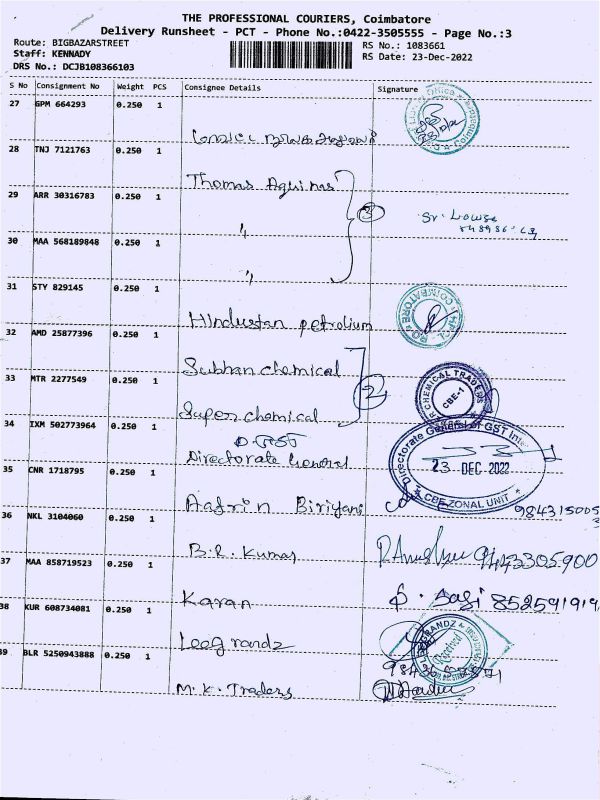 THE PROFESSIONAL COURIERS, Coimbatore
Delivery Runsheet - PCT - Phone No.:0422-3505555 - Page No.:3
Route: BIGBAZARSTREET
Staff: KENNADY
DRS No.: DCJB108366103
RS No.: 1083661
RS Date: 23-Dec-2022
S No Consignment No Weight PCS Consignee Details Signature
27 GPM 664293 0.250 1
28 TNJ 7121763 0.250 1
Thomas Aquinas
29 ARR 30316783 0.250 1
" 3 Sr. Lowse
30 MAA 568189848 0.250 1
"
31 STY 829145 0.250 1
Hindustan petrolium
COIMBATORE
32 AMD 25877396 0.250 1
Subhan chemical
33 MTR 2277549 0.250 1
2
CHEMICAL TRADERS
CBE-1
Super chemical
34 IXM 502773964 0.250 1
Directorate General
Directorate General of GST
23 DEC 2022
CBE ZONAL UNIT
35 CNR 1718795 0.250 1
Aafrin Biriyani
36 NKL 3104060 0.250 1
B.R. Kumar
9443305900
37 MAA 858719523 0.250 1
Karan
38 KUR 608734081 0.250 1
Leegrandz
Received
39 BLR 5250943888 0.250 1
M.K. Traders